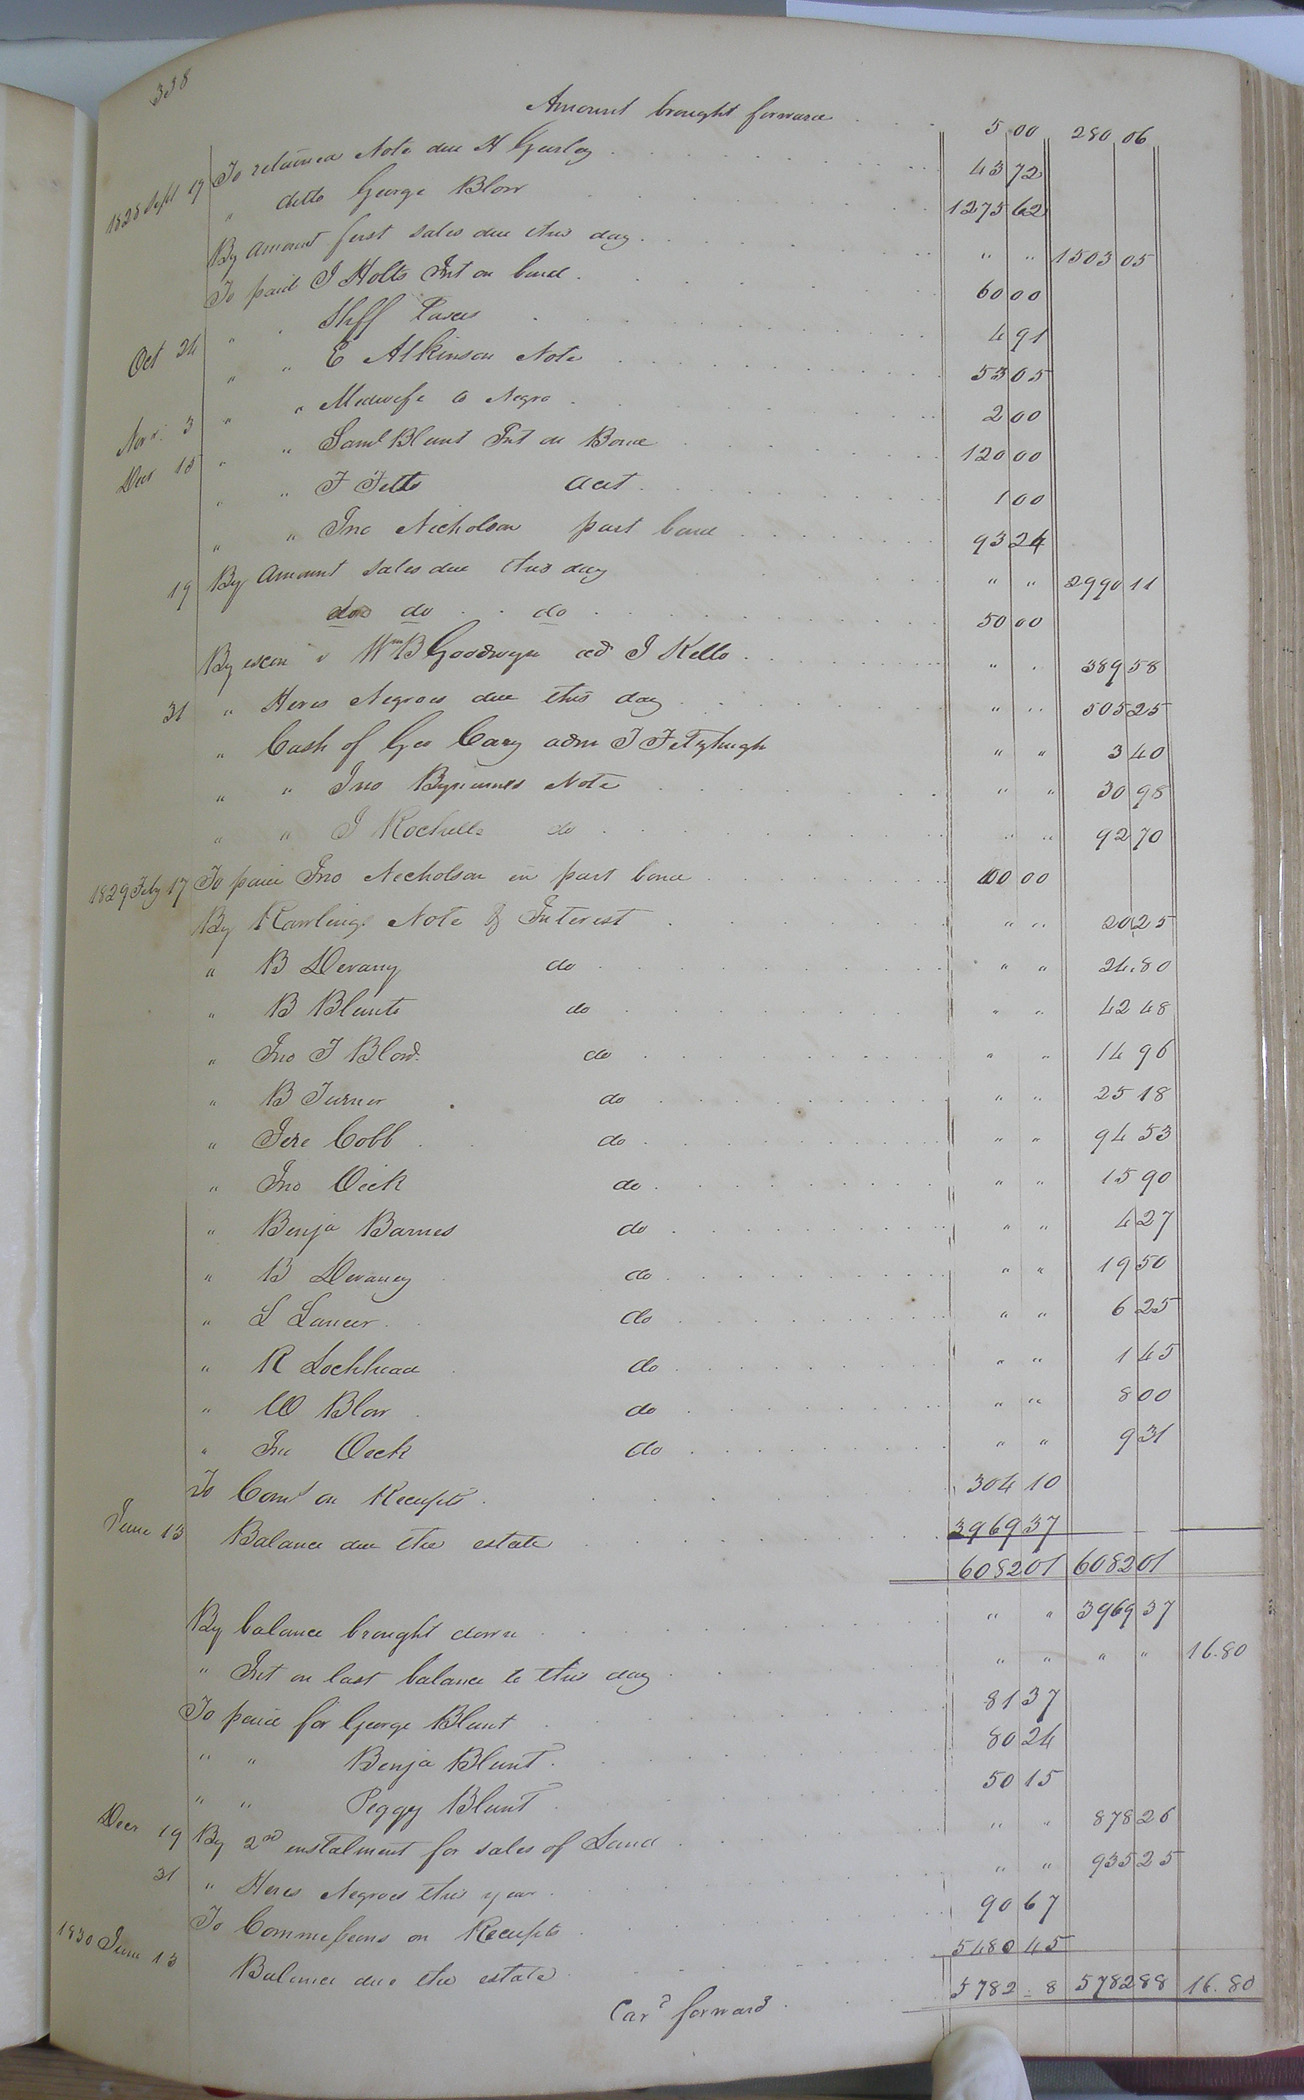 338
Amount brought forward 5 00 280 06
1828 Sept 19 To returned Note due H Gurley 43 72
" ditto George Blow 1275 62
By amount first sales due this day " " 1503 05
To paid J Holts Int on bond 60 00
Oct 24 " " Shff Taxes 4 91
" " E Atkinson Note 53 05
Novr. 3 " " Midwife to Negro 2 00
Decr 15 " " Saml Blunt Int on Bond 120 00
" " F Felts acct 1 00
" " Jno Nicholson part bond 93 24
19 By Amount sales due this day " " 2990 11
do do do 50 00
By exon v Wm B Goodwyn ad J Kello " " 389 58
31 " Hires Negroes due this day " " 505 25
" Cash of Geo Cary adm T Fitzhugh " " 3 40
" " Jno Byrums Note " " 30 98
" " J Rochelle do " " 92 70
1829 Feby 17 To paid Jno Nicholson in part bond 100 00
By Rawlings Note & Interest " " 20 25
" B Devany do " " 24.80
" B Blunts do " " 42 48
" Jno T Blow do " " 14 96
" B Turner do " " 25 18
" Jere Cobb do " " 94 53
" Jno Dick do " " 15 90
" Benja Barnes do " " 4 27
" B Devaney do " " 19 50
" L Lanier do " " 6 25
" R Lochhead do " " 1 45
" W Blow do " " 8 00
" Jno Dick do " " 9 31
To Coms on Receipts 304 10
June 13 Balance due the estate 3969 37
6082 01 6082 01
By balance brought down " " 3969 37
" Int on last balance to this day " " " " 16.80
To paid for George Blunt 81 37
" " Benja Blunt 80 24
" " Peggy Blunt 50 15
Decr 19 By 2nd instalment for sales of Land " " 878 26
31 " Hires Negroes this year " " 935 25
To Commissions on Receipts 90 67
1830 June 13 Balance due the estate 5480 45
5782 - 8 5782 88 16.80
Card forward